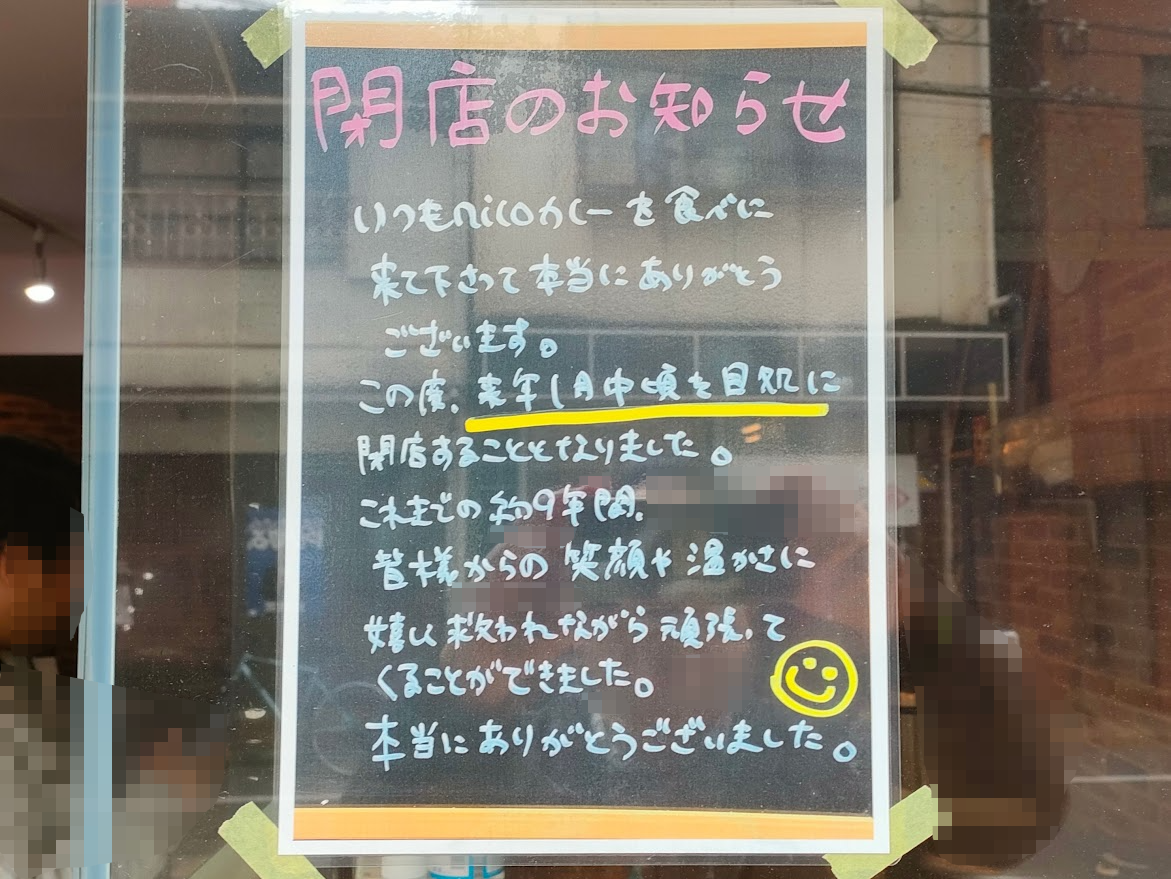 閉店のお知らせ
いつもnicoカレーを食べに
来て下さって本当にありがとう
ございます。
この度、来年1月中頃を目処に
閉店することとなりました。
これまでの約9年間、
皆様からの笑顔や温かさに
嬉しく救われながら頑張って
くることができました。
本当にありがとうございました。